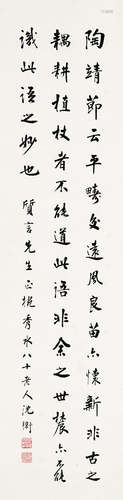 陶靖節云平疇交遠風良苗亦懷新非古之
耦耕植杖者不能道此語非余之世農亦不能
識此語之妙也
質言先生正撝秀水八十老人沈衛